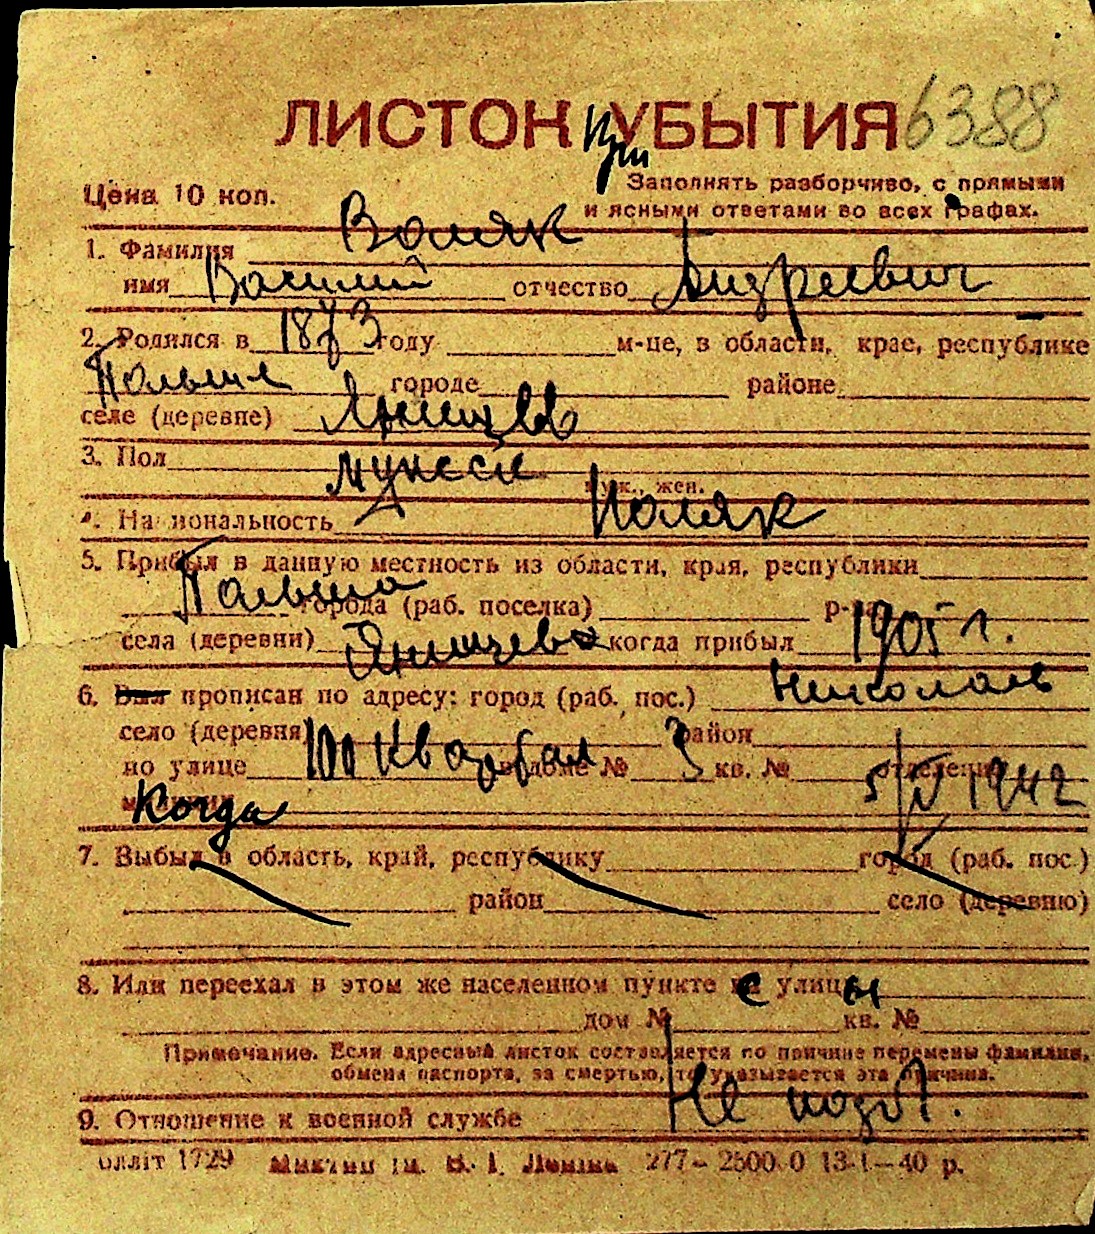 ЛИСТОК УБЫТИЯ 6388
При
Цена 10 коп.
Заполнять разборчиво, с прямыми
и ясными ответами во всех графах.
1. Фамилия Воляк
имя Василий отчество Андреевич
2. Родился в 1873 году м-це, в области, крае, республике
Польше городе районе
селе (деревне)
3. Пол мужск
муж., жен.
4. Национальность Поляк
5. Прибыл в данную местность из области, края, республики
Польша города (раб. поселка) р-на
села (деревни) Янишево когда прибыл 1905 г.
6. Был прописан по адресу: город (раб. пос.) Николаев
село (деревня) район
по улице 100 Квартал в доме № 3 кв. № отделени
милиции Когда 5/IV 1942
7. Выбыл в область, край, республику город (раб. пос.)
район село (деревню)
8. Или переехал в этом же населенном пункте с улицы
дом № кв. №
Примечание. Если адресный листок составляется по причине перемены фамилии,
обмена паспорта, за смертью, то указывается эта причина.
9. Отношение к военной службе Не
Олліт 1729 ім. В. І. Леніна 277—2500.0 13-I—40 р.